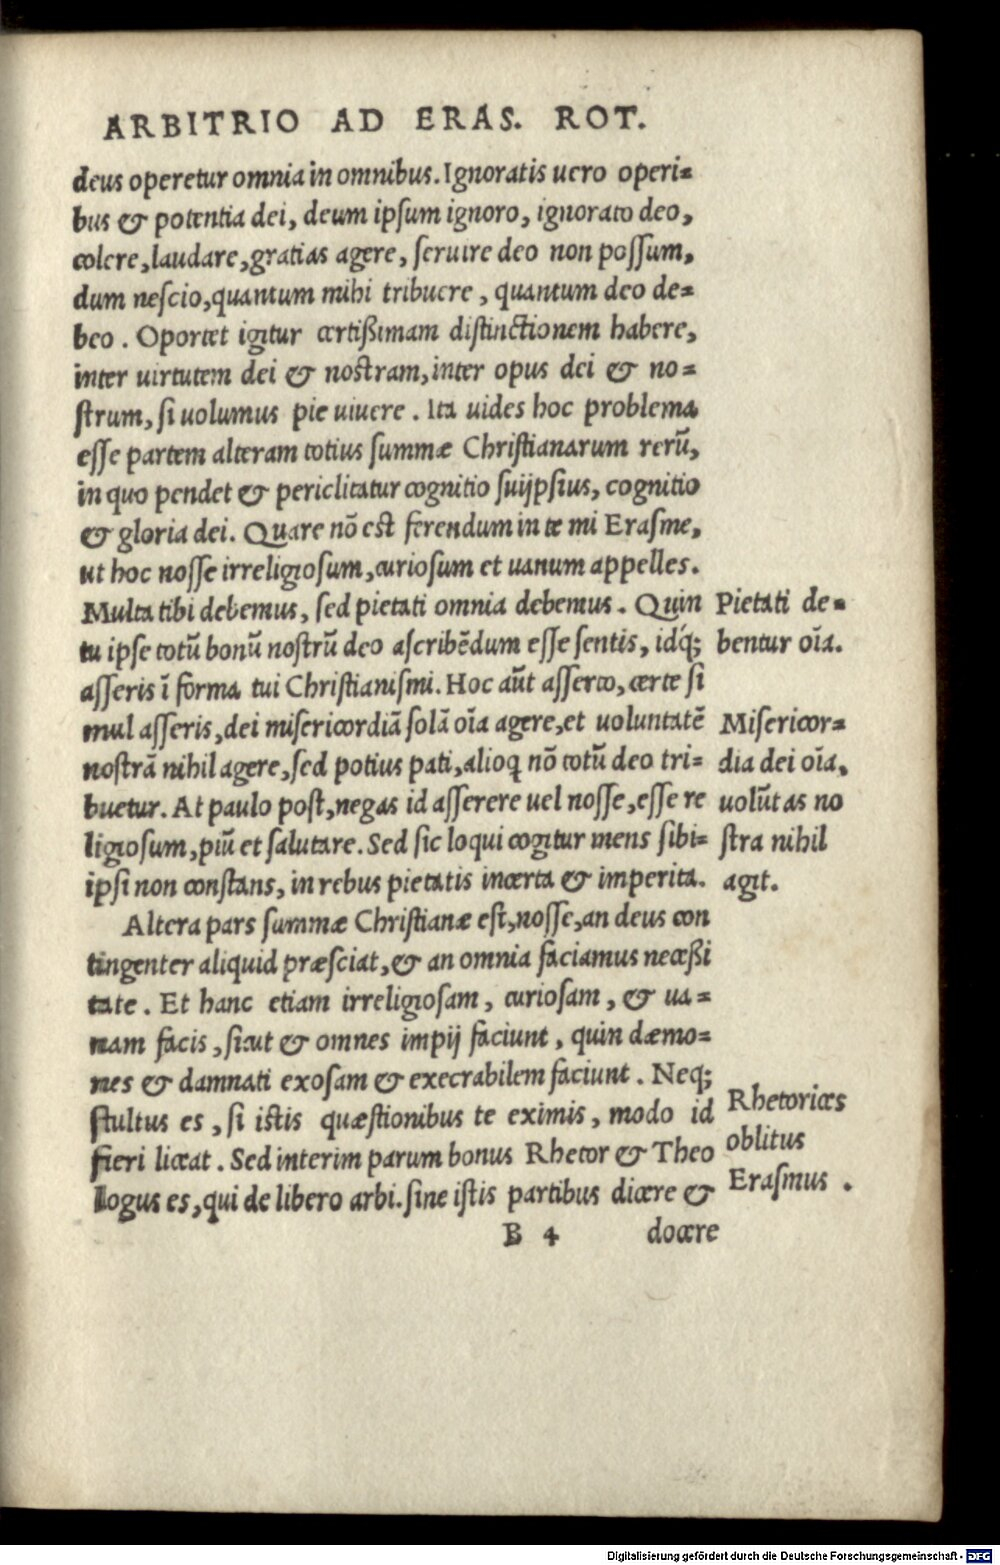 ARBITRIO AD ERAS. ROT.
deus operetur omnia in omnibus. Ignoratis uero operi-
bus & potentia dei, deum ipsum ignoro, ignorato deo,
colere, laudare, gratias agere, seruire deo non possum,
dum nescio, quantum mihi tribuere, quantum deo de-
beo. Oportet igitur certißimam distinctionem habere,
inter uirtutem dei & nostram, inter opus dei & no-
strum, si uolumus pie uiuere. Ita uides hoc problema
esse partem alteram totius summæ Christianarum rerũ,
in quo pendet & periclitatur cognitio suijpsius, cognitio
& gloria dei. Quare nõ est ferendum in te mi Erasme,
ut hoc nosse irreligiosum, curiosum et uanum appelles.
Multa tibi debemus, sed pietati omnia debemus. Quin
tu ipse totũ bonũ nostrũ deo ascribẽdum esse sentis, idq́;
asseris ĩ forma tui Christianismi. Hoc aũt asserto, certe si
mul asseris, dei misericordiã solã oĩa agere, et uoluntatẽ
nostrã nihil agere, sed potius pati, alioq nõ totũ deo tri-
buetur. At paulo post, negas id asserere uel nosse, esse re
ligiosum, piũ et salutare. Sed sic loqui cogitur mens sibi-
ipsi non constans, in rebus pietatis incerta & imperita.
Altera pars summæ Christianæ est, nosse, an deus con
tingenter aliquid præsciat, & an omnia faciamus necessi
tate. Et hanc etiam irreligiosam, curiosam, & ua-
nam facis, sicut & omnes impij faciunt, quin dæmo-
nes & damnati exosam & execrabilem faciunt. Neq;
stultus es, si istis quæstionibus te eximis, modo id
fieri liceat. Sed interim parum bonus Rhetor & Theo
logus es, qui de libero arbi. sine istis partibus dicere &
B 4 docere
Pietati de-
bentur oĩa.
Misericor-
dia dei oĩa,
uolũtas no
stra nihil
agit.
Rhetorices
oblitus
Erasmus.
Digitalisierung gefördert durch die Deutsche Forschungsgemeinschaft - DFG